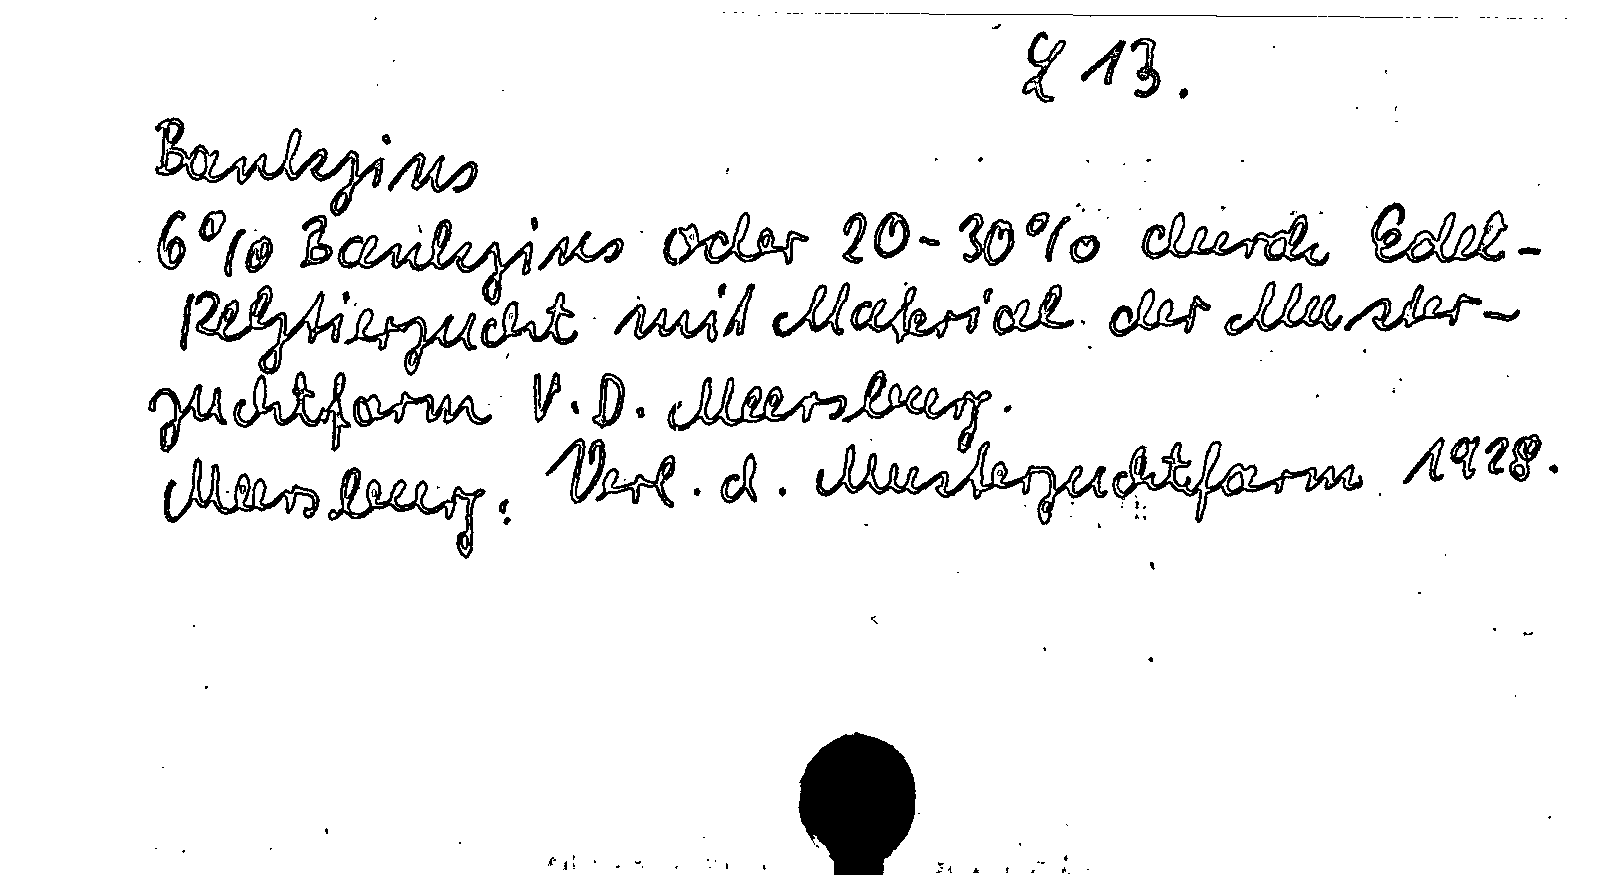 L 13.
Bankzins
6% Bankzins oder 20-30% durch Edel-
pelztierzucht mit Material der Muster-
zuchtfarm V.D. Meersburg.
Meersburg: Verl. d. Musterzuchtfarm 1928.